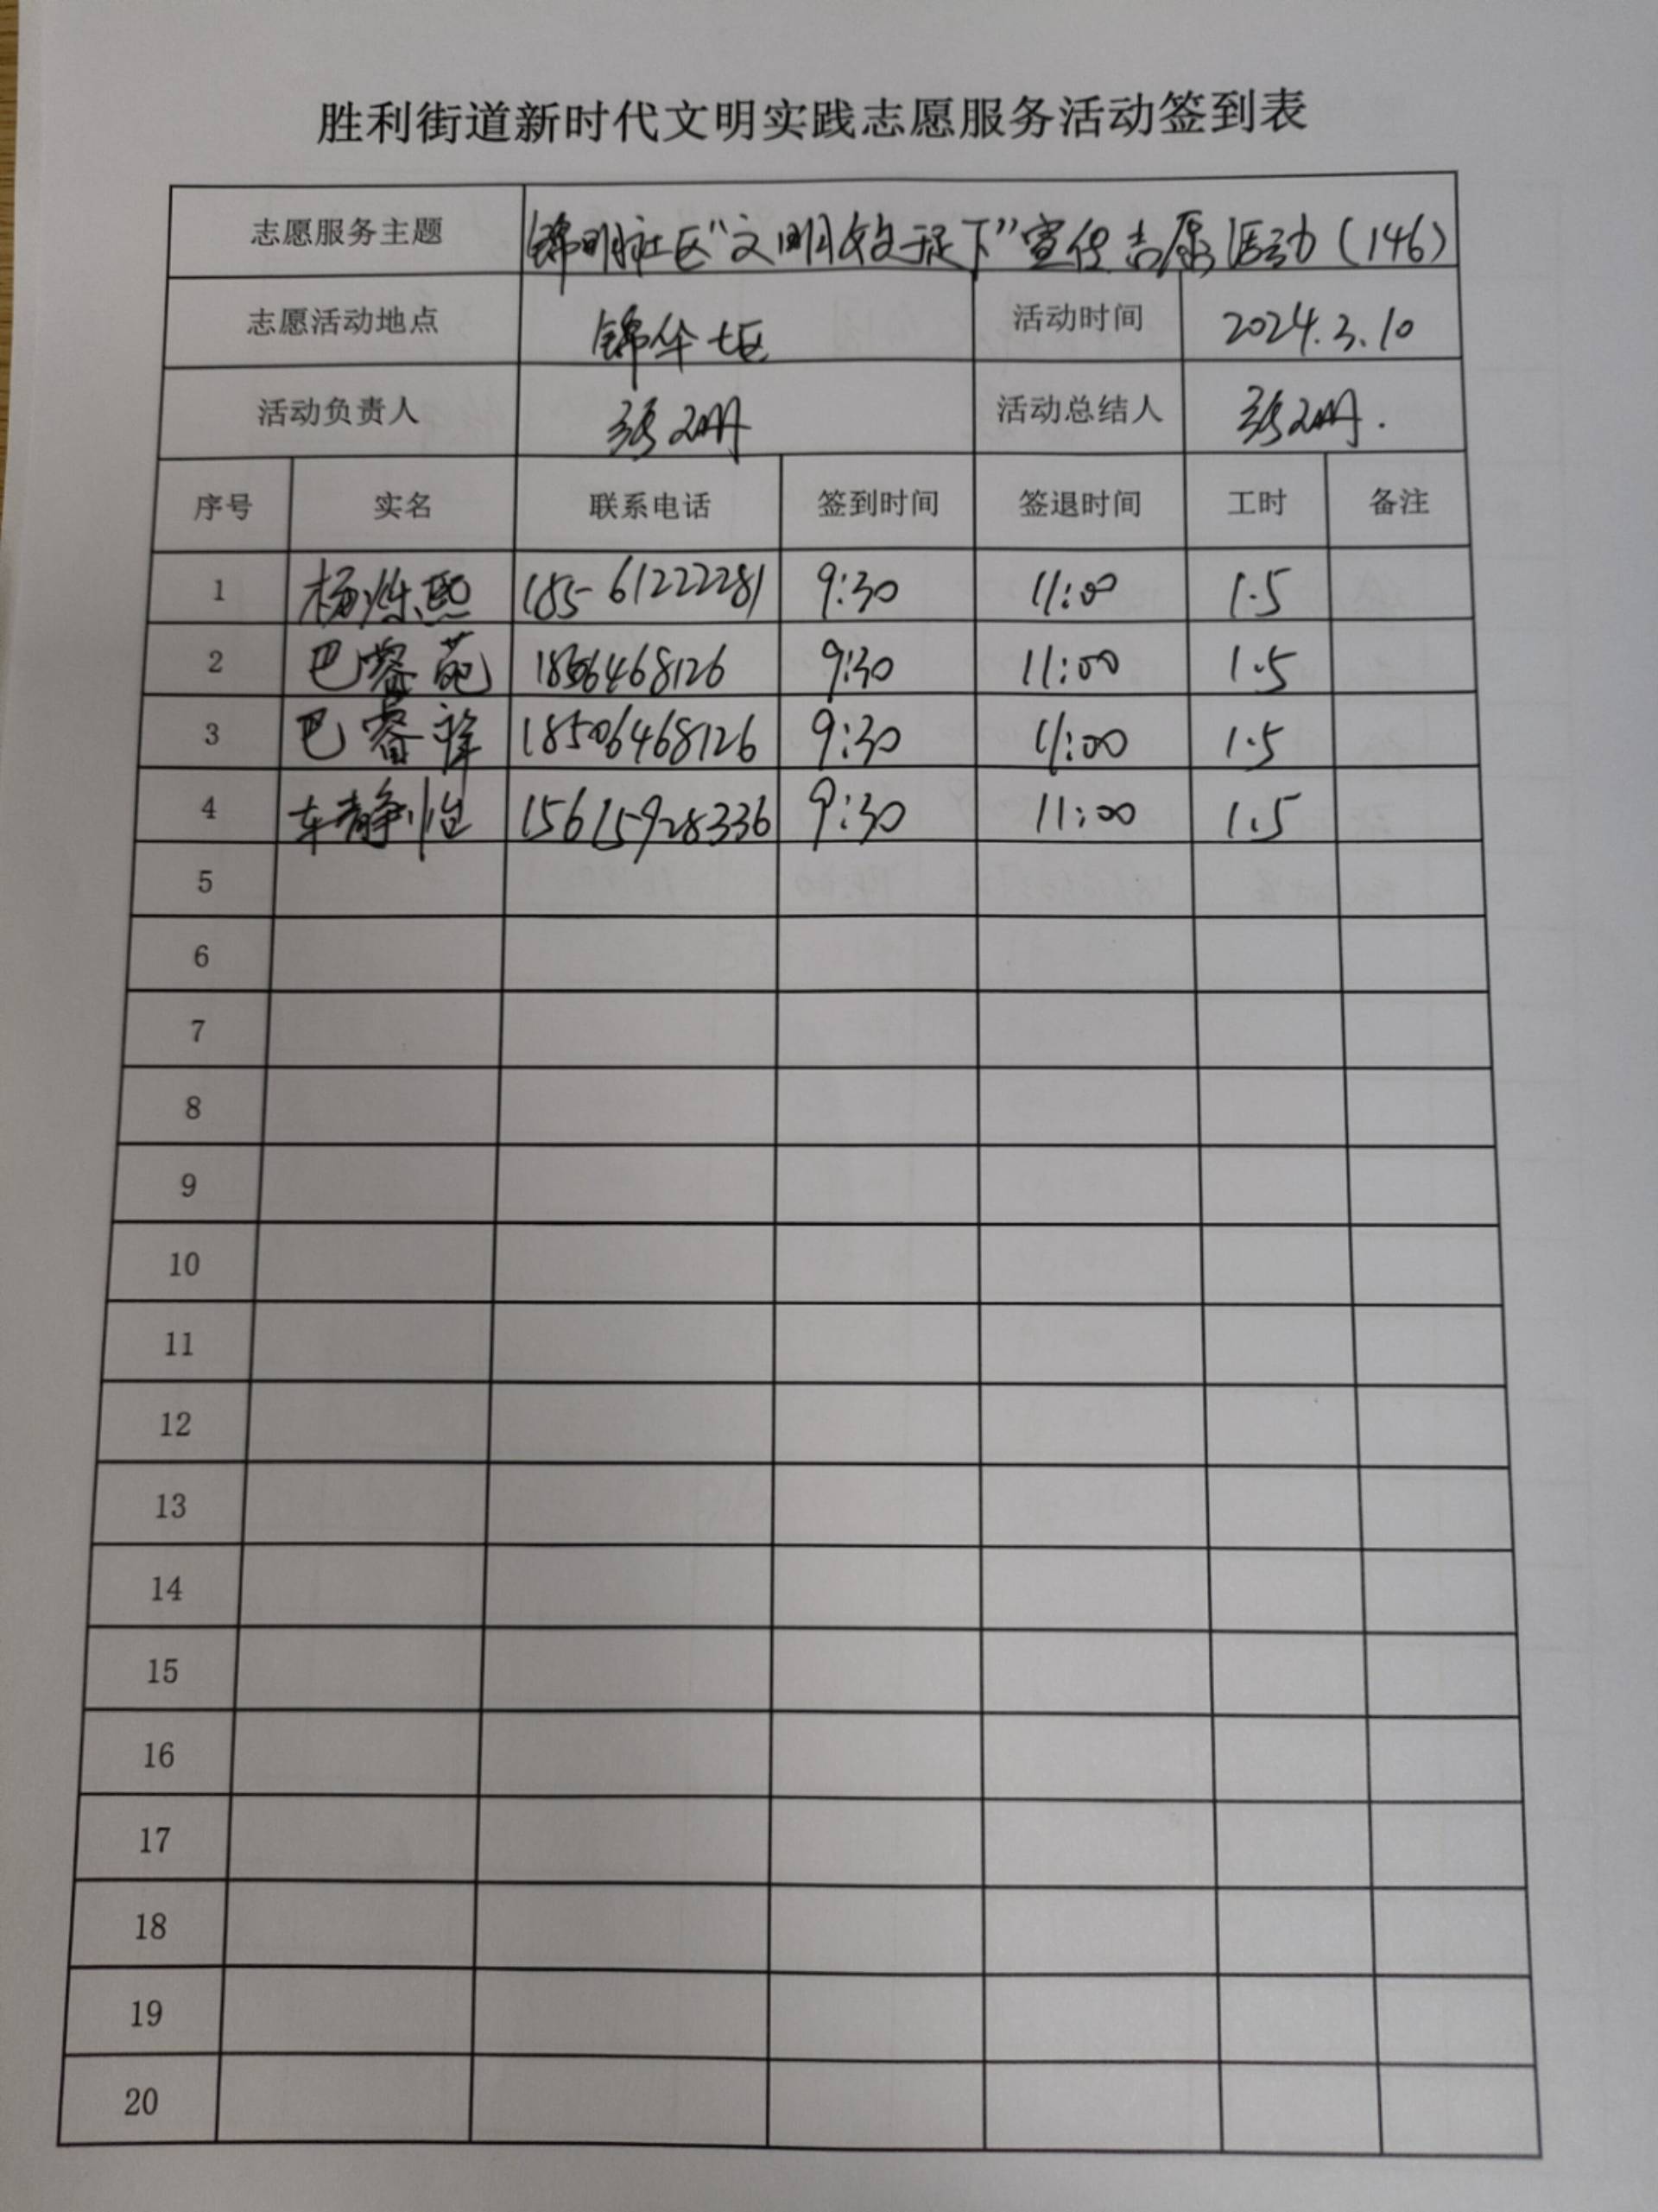 胜利街道新时代文明实践志愿服务活动签到表
志愿服务主题 锦明社区“文明始于足下”宣传志愿活动(146)
志愿活动地点 锦华七区 活动时间 2024.3.10
活动负责人 张 活动总结人 张
序号 实名 联系电话 签到时间 签退时间 工时 备注
1 杨 熙 185-61222281 9:30 11:00 1.5
2 巴睿苑 9:30 11:00 1.5
3 巴睿 18506468126 9:30 11:00 1.5
4 车静怡 15615928336 9:30 11:00 1.5
5
6
7
8
9
10
11
12
13
14
15
16
17
18
19
20